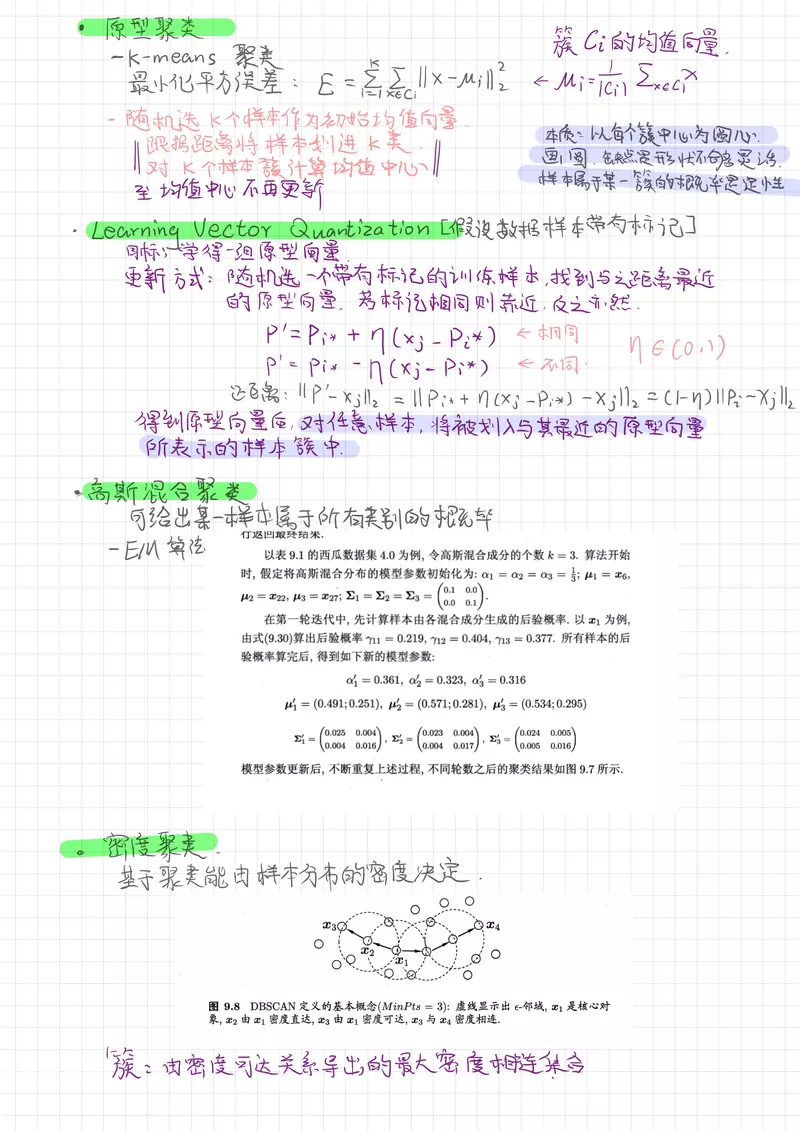 • 原型聚类
- K-means 聚类
簇 Ci 的均值向量.
最小化平方误差: E = ∑_{i=1}^{K} ∑_{x∈Ci} ||x-μi||₂² ← μi = 1/|Ci| ∑_{x∈Ci} x
- 随机选 K个样本作为初始均值向量
‖ 跟据距离将样本划进 K 类.
‖ 对 K个样本簇计算均值中心 ‖
至均值中心不再更新
本质: 以每个簇中心为圆心.
画圆. 缺点是形状不够灵活.
样本属于某一簇的概率是定性
· Learning Vector Quantization [假设数据样本带有标记]
目标: 学得一组原型向量.
更新方式: 随机选一个带有标记的训练样本, 找到与之距离最近
的原型向量. 若标记相同则靠近, 反之亦然.
P' = Pi* + η(xj - Pi*) ← 相同
P' = Pi* - η(xj - Pi*) ← 不同.
η∈(0,1)
距离: ||P'-xj||₂ = ||Pi* + η(xj-Pi*) - xj||₂ = (1-η)||Pi-Xj||₂
得到原型向量后, 对任意样本, 将被划入与其最近的原型向量
所表示的样本簇中.
• 高斯混合聚类
可给出某一样本属于所有类别的概率
- EM 算法
行返回最终结果.
以表 9.1 的西瓜数据集 4.0 为例, 令高斯混合成分的个数 k = 3. 算法开始
时, 假定将高斯混合分布的模型参数初始化为: α₁ = α₂ = α₃ = 1/3; μ₁ = x₆,
μ₂ = x₂₂, μ₃ = x₂₇; Σ₁ = Σ₂ = Σ₃ = (0.1 0.0 0.0 0.1).
在第一轮迭代中, 先计算样本由各混合成分生成的后验概率. 以 x₁ 为例,
由式(9.30)算出后验概率 γ₁₁ = 0.219, γ₁₂ = 0.404, γ₁₃ = 0.377. 所有样本的后
验概率算完后, 得到如下新的模型参数:
α₁′ = 0.361, α₂′ = 0.323, α₃′ = 0.316
μ₁′ = (0.491;0.251), μ₂′ = (0.571;0.281), μ₃′ = (0.534;0.295)
Σ₁′ = (0.025 0.004 0.004 0.016), Σ₂′ = (0.023 0.004 0.004 0.017), Σ₃′ = (0.024 0.005 0.005 0.016)
模型参数更新后, 不断重复上述过程, 不同轮数之后的聚类结果如图 9.7 所示.
• 密度聚类.
基于聚类能由样本分布的密度决定.
x₃ x₄
x₂
x₁
图 9.8 DBSCAN 定义的基本概念(MinPts = 3): 虚线显示出 ϵ-邻域, x₁ 是核心对
象, x₂ 由 x₁ 密度直达, x₃ 由 x₁ 密度可达, x₃ 与 x₄ 密度相连.
簇: 由密度可达关系导出的最大密度相连集合